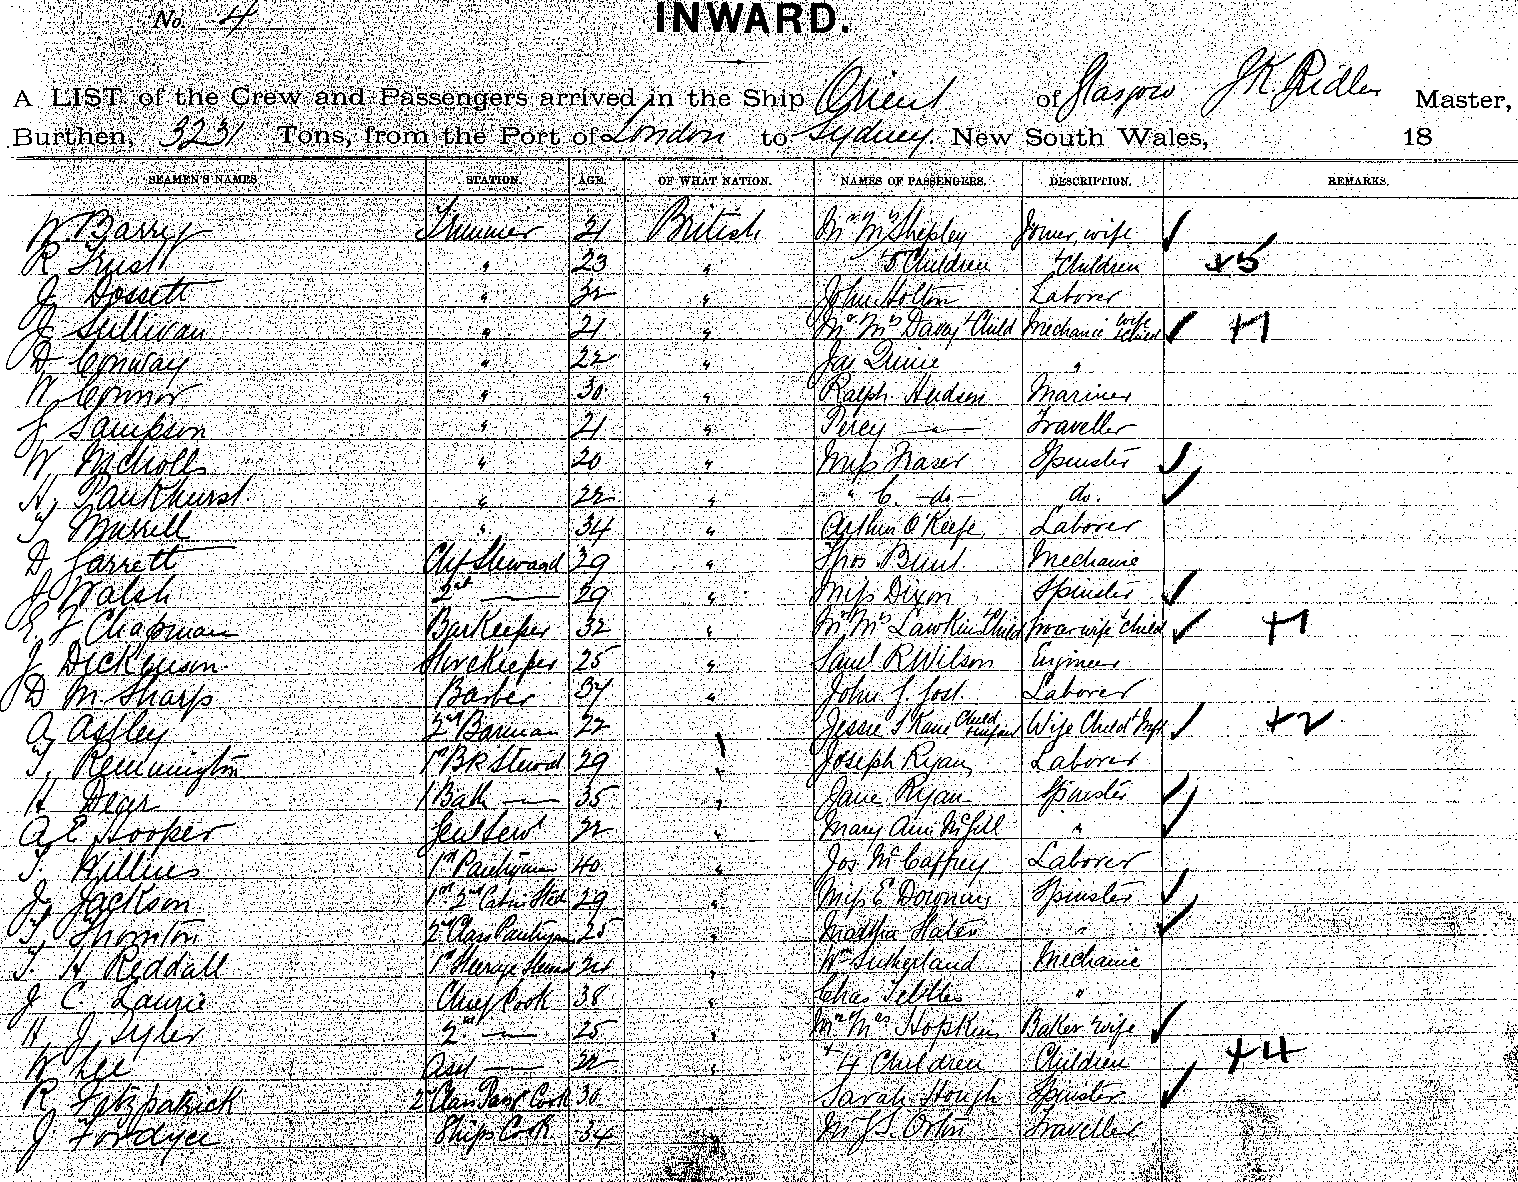 No. 4
INWARD.
A LIST of the Crew and Passengers arrived in the Ship Orient of Glasgow J K Ridler Master,
Burthen, 3231 Tons, from the Port of London to Sydney. New South Wales, 18
SEAMEN'S NAMES STATION. AGE. OF WHAT NATION. NAMES OF PASSENGERS. DESCRIPTION. REMARKS.
W Barry Trimmer 21 British Mr Mrs Shepley Joiner, wife ✓
R Trust " 23 " 5 Children + Children +5
J Dossett " 32 " John Holton Laborer
J Sullivan " 21 " Mr Mrs Davey + Child Mechanic wife + child ✓ +1
D Conway " 22 " Jas Quine "
W Connor " 30 " Ralph Hudson Mariner
J Sampson " 21 " Percy — Traveller
W Nicholls " 20 " Miss Fraser Spinster ✓
H Pankhurst " 22 " " C. do do. ✓
T Murrell " 34 " Arthur O'Keefe Laborer
D Garrett Chf Steward 39 " Thos Blunt Mechanic
J Walsh 2nd — 29 " Miss Dixon Spinster ✓
E F Chapman BarKeeper 32 " Mr Mrs Lawkins + Child wife + child ✓ +1
J Dickinson StoreKeeper 25 " Saml R Wilson Engineer
D M Sharp Barber 37 " John J Jost Laborer
A Astley 2nd Barman 22 Jessie S Kane Child + infant Wife Child + Inft ✓ +2
T Remmington 1st BR Stewd 29 " Joseph Ryan Laborer
H Dear 1 Bath — 35 " Jane Ryan Spinster ✓
A E Hooper Genl Serv 22 " Mary Ann McGill " ✓
T. Willies 1st Pantryman 40 " Jos McCaffrey Laborer
J Jackson 1st 2nd Cabin Sted 29 " Miss E Downing Spinster ✓
T Thornton 2nd Class Pantryman 25 " Martha Slater " ✓
T. H Reddall 1st Steerage Stewd 24 " Wm Sutherland Mechanic
J C. Laurie Chief Cook 38 " Chas Tebttes "
H J Tyler 2nd — 25 " Mr Mrs Hopkins Baker wife ✓
W Lee Asst — 32 " + 4 Children Children +4
R Fitzpatrick 2 Class Pass Cook 30 Sarah Hough Spinster ✓
J Fordyce Ships Cook 34 " Mr J S. Orton Traveller